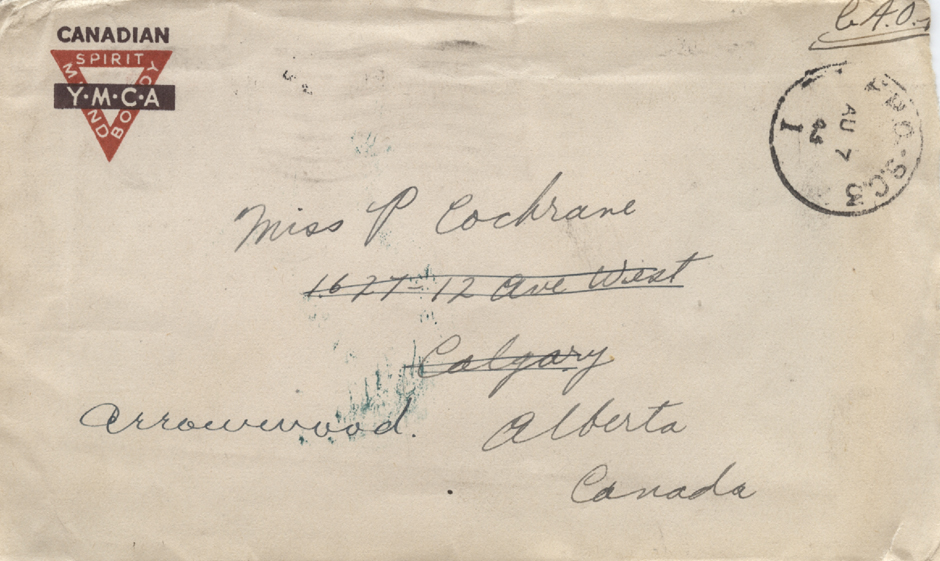 CANADIAN
SPIRIT
MIND
BODY
Y·M·C·A
C.A.O.
AU 7
44
I
S.C.3
Miss P Cochrane
1627-12 Ave West
Calgary
Arrowwood. Alberta
Canada